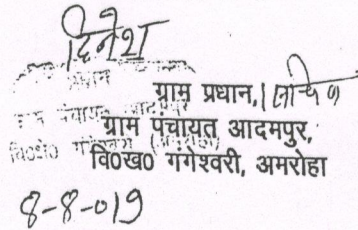 दिनेश
प्रधान
ग्राम प्रधान, सचिव
ग्राम पंचायत आदमपुर,
वि०ख० गंगेश्वरी, अमरोहा
8-8-019